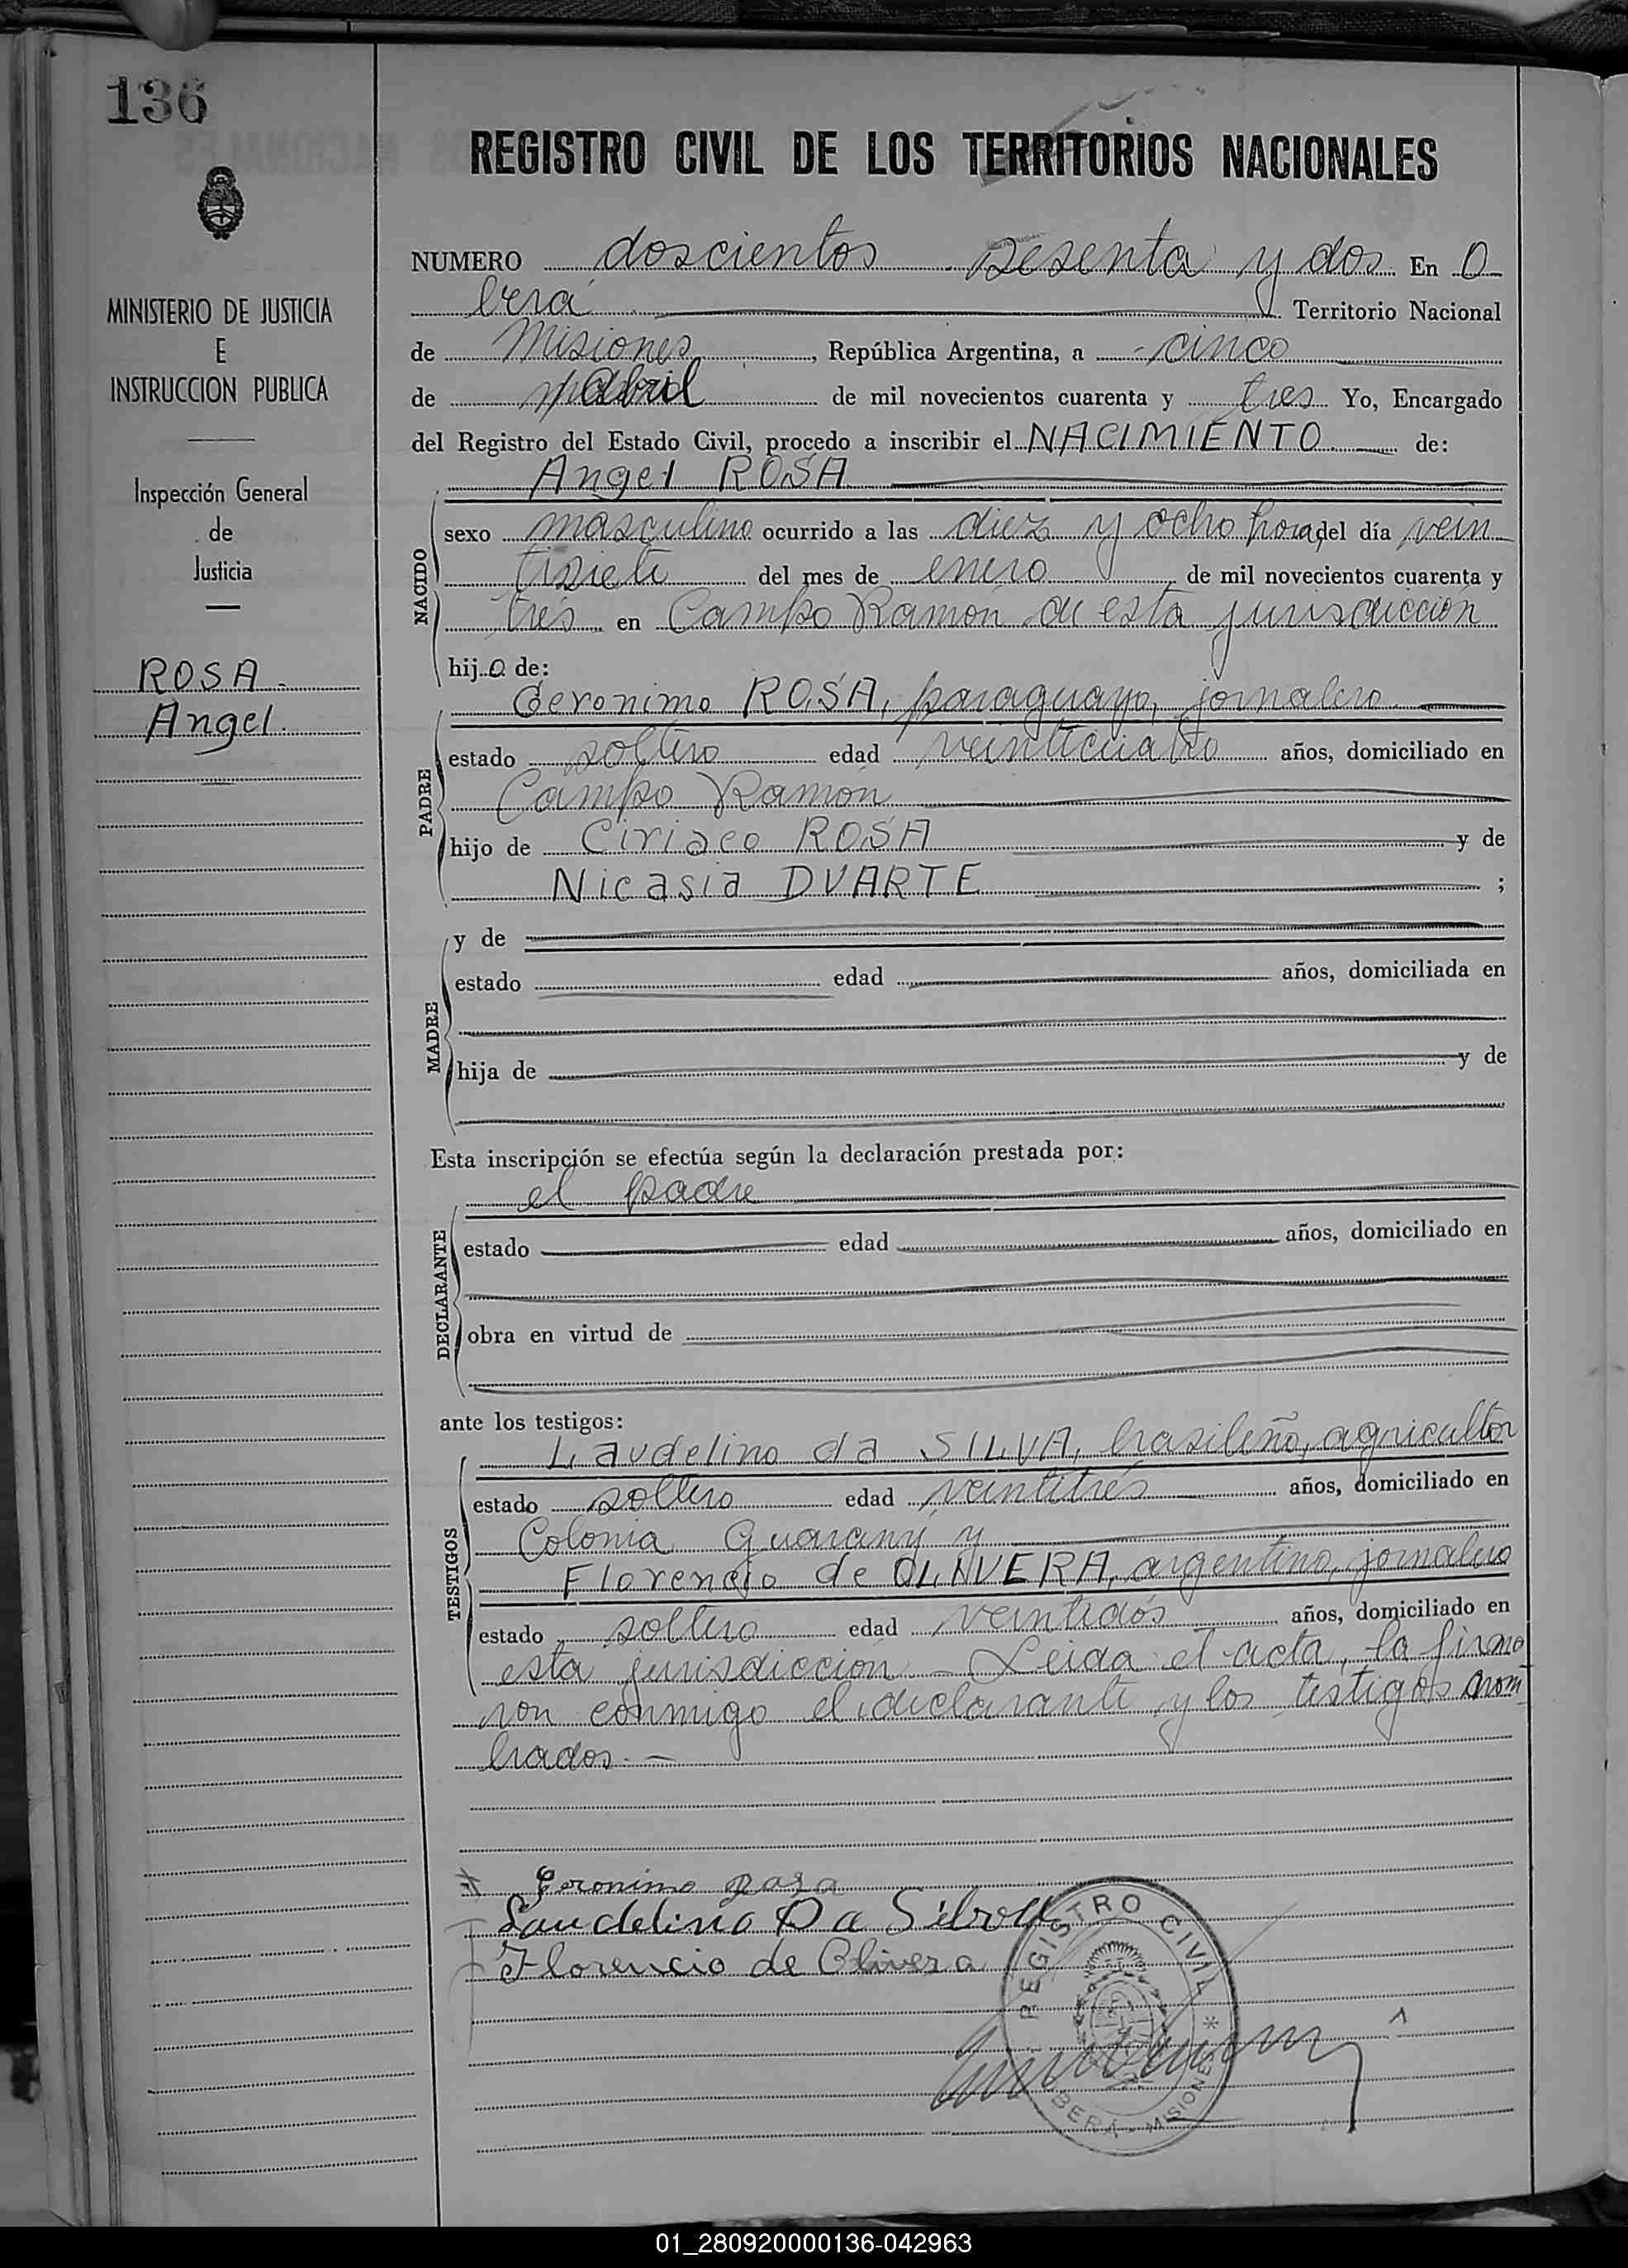 136
REGISTRO CIVIL DE LOS TERRITORIOS NACIONALES
MINISTERIO DE JUSTICIA
E
INSTRUCCION PUBLICA
Inspección General
de
Justicia
ROSA.-
Angel.
NUMERO doscientos sesenta y dos En O
berá Territorio Nacional
de Misiones, República Argentina, a cinco
de abril de mil novecientos cuarenta y tres Yo, Encargado
del Registro del Estado Civil, procedo a inscribir el NACIMIENTO de:
Angel ROSA
NACIDO
sexo masculino ocurrido a las diez y ocho horas del día vein
tisiete del mes de enero de mil novecientos cuarenta y
tres en Campo Ramón de esta jurisdicción
hijo de:
PADRE
Geronimo ROSA, paraguayo, jornalero
estado soltero edad veinticuatro años, domiciliado en
Campo Ramón
hijo de Ciriaco ROSA y de
Nicasia DUARTE ;
MADRE
y de
estado edad años, domiciliada en
hija de y de
Esta inscripción se efectúa según la declaración prestada por:
el padre
DECLARANTE
estado edad años, domiciliado en
obra en virtud de
ante los testigos:
TESTIGOS
Laudelino da SILVA, brasileño, agricultor
estado soltero edad veintitrés años, domiciliado en
Colonia Guarany y
Florencio de OLIVERA, argentino, jornalero
estado soltero edad veintidós años, domiciliado en
esta jurisdicción - Leida el acta, la firma
ron conmigo el declarante y los testigos nom
brados.-
Geronimo
Laudelino Da Silva
Florencio de Olivera
REGISTRO CIVIL
OBERÁ - MISIONES *
01_280920000136-042963